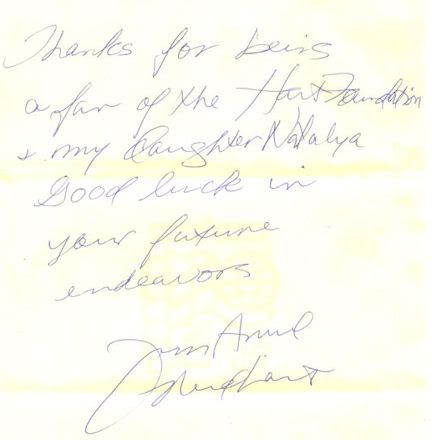 Thanks for being
a fan of the Hart Foundation
& my daughter Natalya
Good luck in
your future
endeavors
Jim Anvil
Neidhart